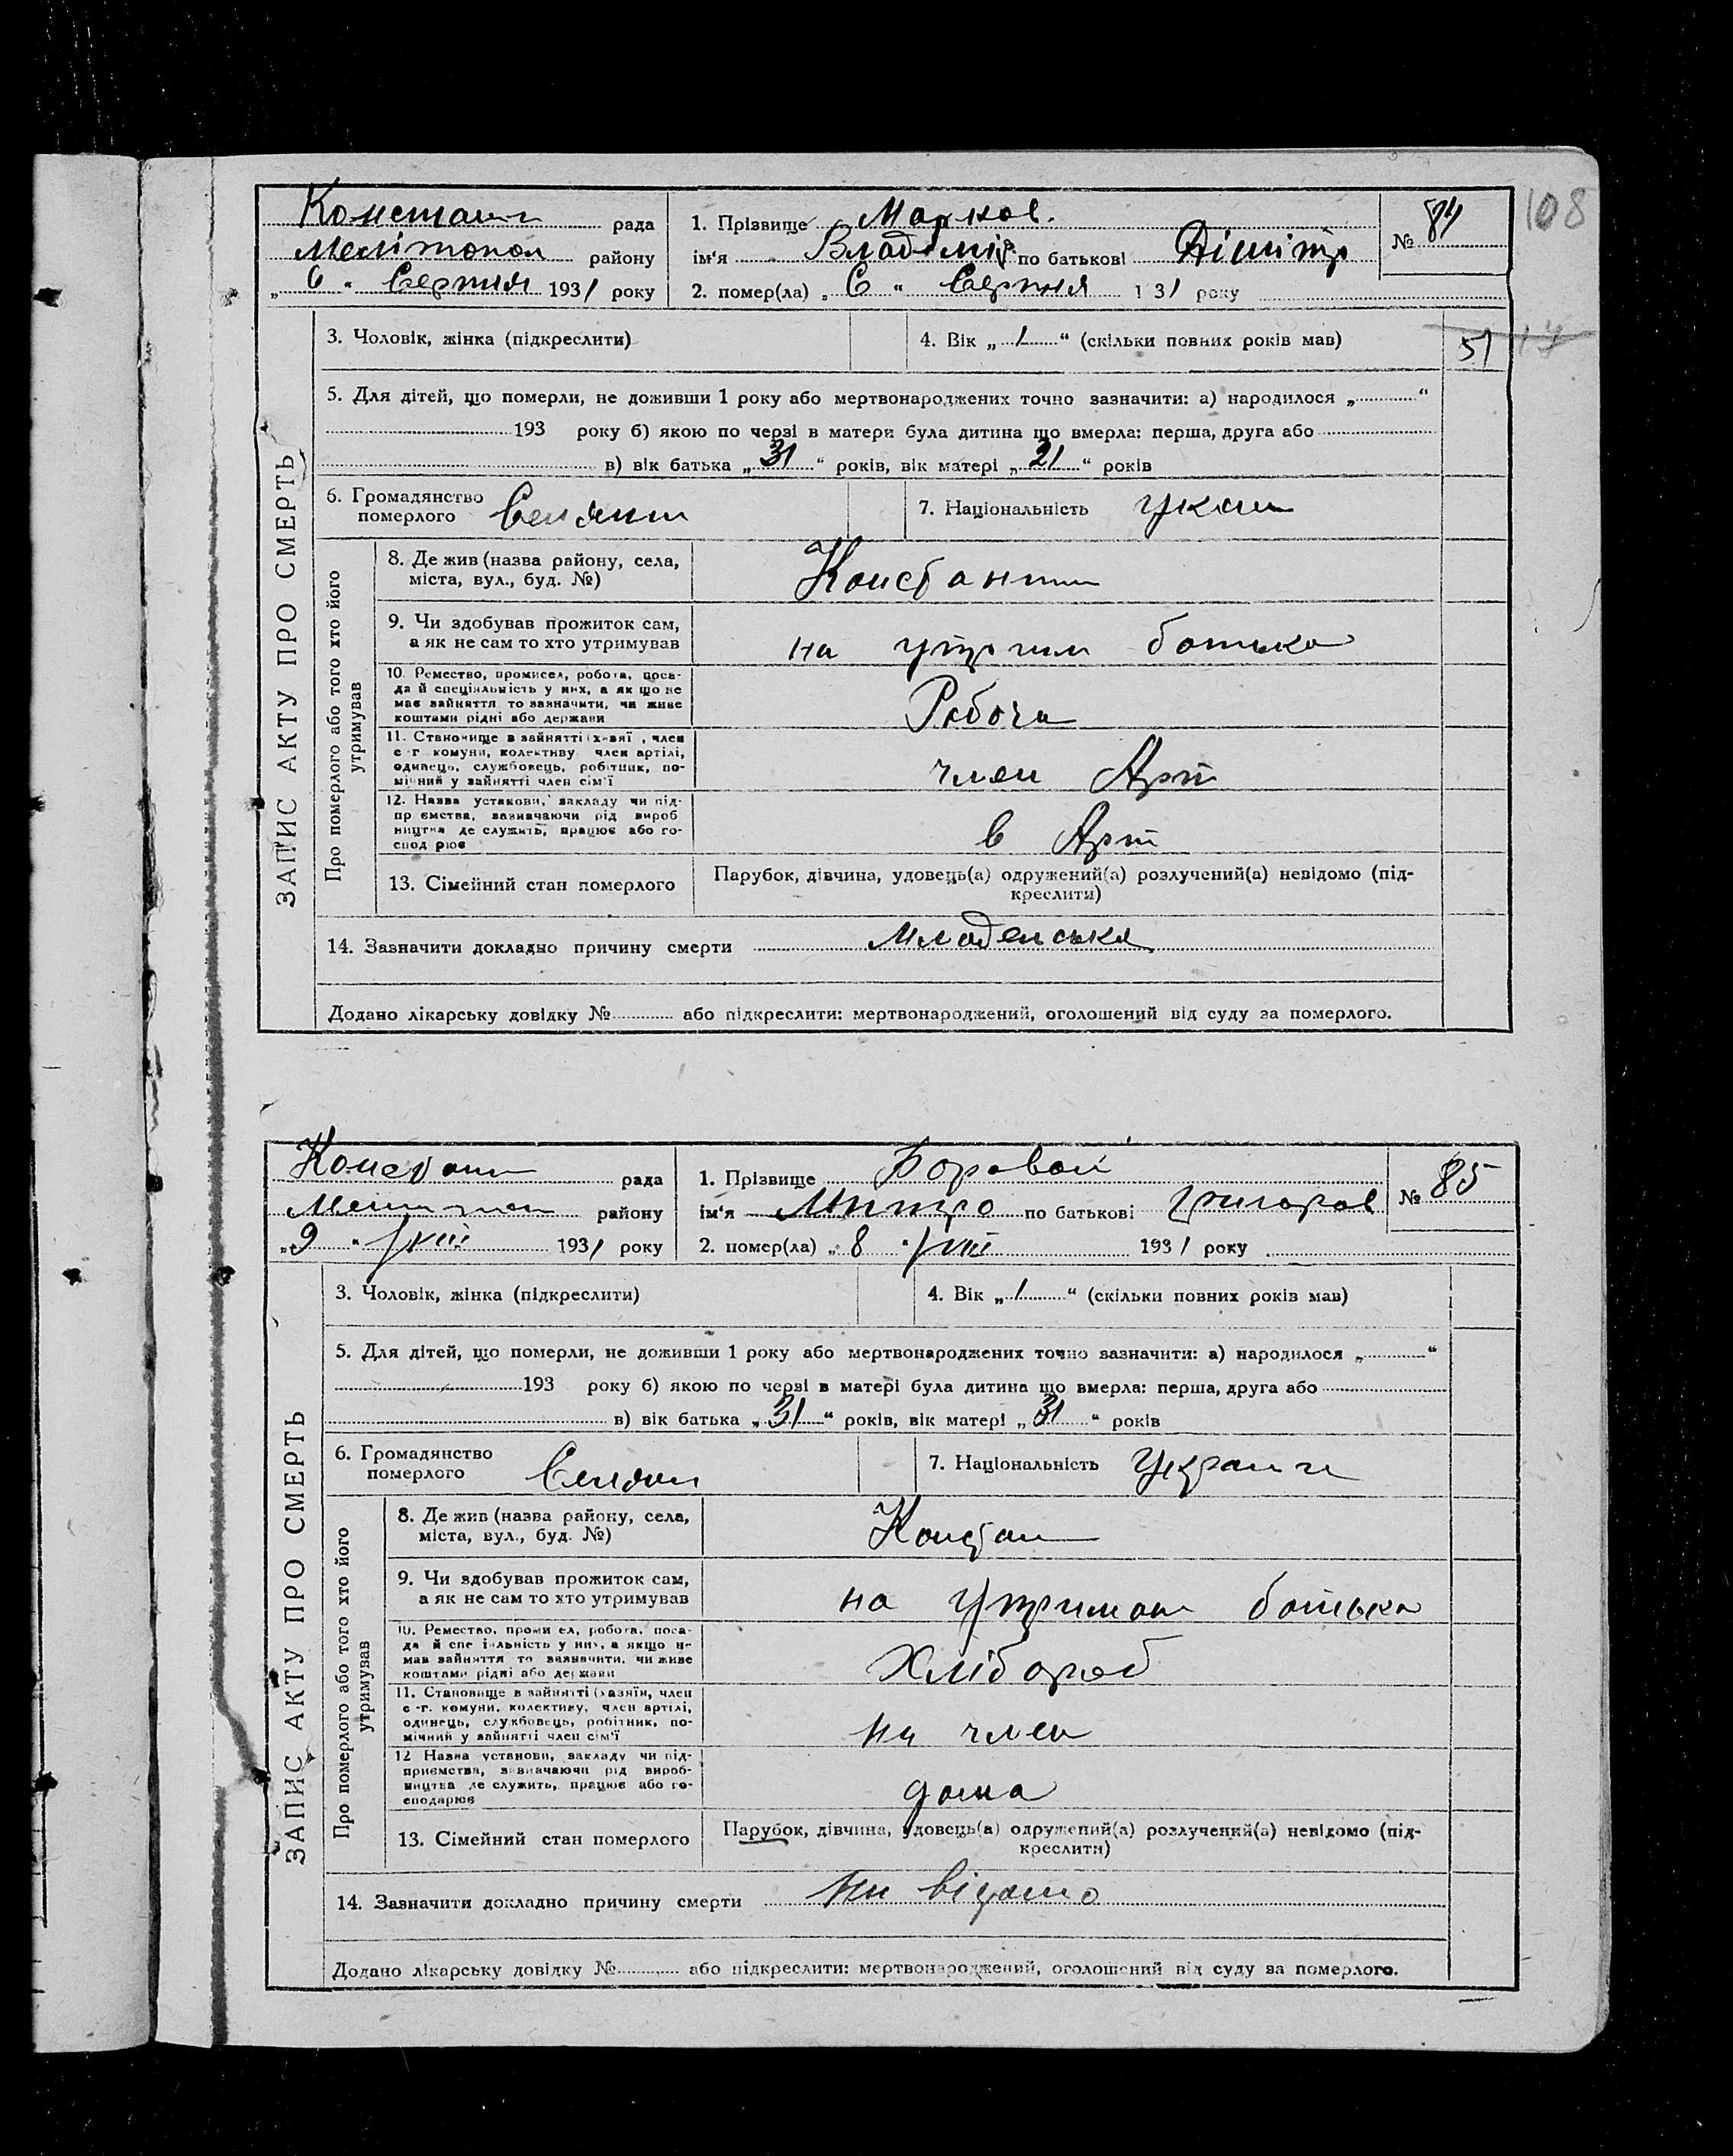 108
Констант рада
Мелітопол району
„6“ Серпня 1931 року
1. Прізвище Марков.
ім'я Владімір по батькові Дімітр
2. помер(ла) „6“ Серпня 1 31 року
№ 84
ЗАПИС АКТУ ПРО СМЕРТЬ
3. Чоловік, жінка (підкреслити)
4. Вік „1“ (скільки повних років мав)
51
5. Для дітей, що померли, не доживши 1 року або мертвонароджених точно зазначити: а) народилося „ “
193 року б) якою по черзі в матери була дитина що вмерла: перша, друга або
в) вік батька „31“ років, вік матері „21“ років
6. Громадянство
померлого Селянин
7. Національність Украї
Про померлого або того хто його
утримував
8. Де жив (назва району, села,
міста, вул., буд. №)
Констант
9. Чи здобував прожиток сам,
а як не сам то хто утримував
на утрим батька
10. Ремество, промисел, робота, поса-
да й спеціяльність у них, а як що не
має зайняття то зазначити, чи живе
коштами рідні або держави
Робоч
11. Становище в зайнятті (хазяї , член
с г комуни, колективу член артілі,
одинець, службовець, робітник, по-
мічний у зайнятті член сім'ї
член Арт
12. Назва установи, закладу чи під-
пр ємства, зазначаючи рід вироб
ництва де служить, працює або го-
спод рює
в Арт
13. Сімейний стан померлого
Парубок, дівчина, удовець(а) одружений(а) розлучений(а) невідомо (під-
креслити)
14. Зазначити докладно причину смерти Младенська
Додано лікарську довідку № або підкреслити: мертвонароджений, оголошений від суду за померлого.
Констант рада
Мелітопол району
„9“ VIII 1931 року
1. Прізвище Боровой
ім'я Митро по батькові Григоров
2. помер(ла) „8“ VIII 1931 року
№ 85
ЗАПИС АКТУ ПРО СМЕРТЬ
3. Чоловік, жінка (підкреслити)
4. Вік „1“ (скільки повних років мав)
5. Для дітей, що померли, не доживши 1 року або мертвонароджених точно зазначити: а) народилося „ “
193 року б) якою по черзі в матері була дитина що вмерла: перша, друга або
в) вік батька „31“ років, вік матері „31“ років
6. Громадянство
померлого Селян
7. Національність Україн
Про померлого або того хто його
утримував
8. Де жив (назва району, села,
міста, вул., буд. №)
Констан
9. Чи здобував прожиток сам,
а як не сам то хто утримував
на утриман батька
10. Ремество, проми ел, робота, поса-
да й спе іяльність у них, а якщо не
має зайняття то зазначити, чи живе
коштами рідні або держави
Хлібороб
11. Становище в зайнятті (хазяїн, член
с -г. комуни, колективу, член артілі,
одинець, службовець, робітник, по-
мічний у зайнятті член сім'ї
ни член
12 Назва установи, закладу чи під-
приємства, зазначаючи рід вироб-
ництва де служить, працює або го-
сподарює
дома
13. Сімейний стан померлого
Парубок, дівчина, удовець(а) одружений(а) розлучений(а) невідомо (під-
креслити)
14. Зазначити докладно причину смерти Ни відомо
Додано лікарську довідку № або підкреслити: мертвонароджений, оголошений від суду за померлого.